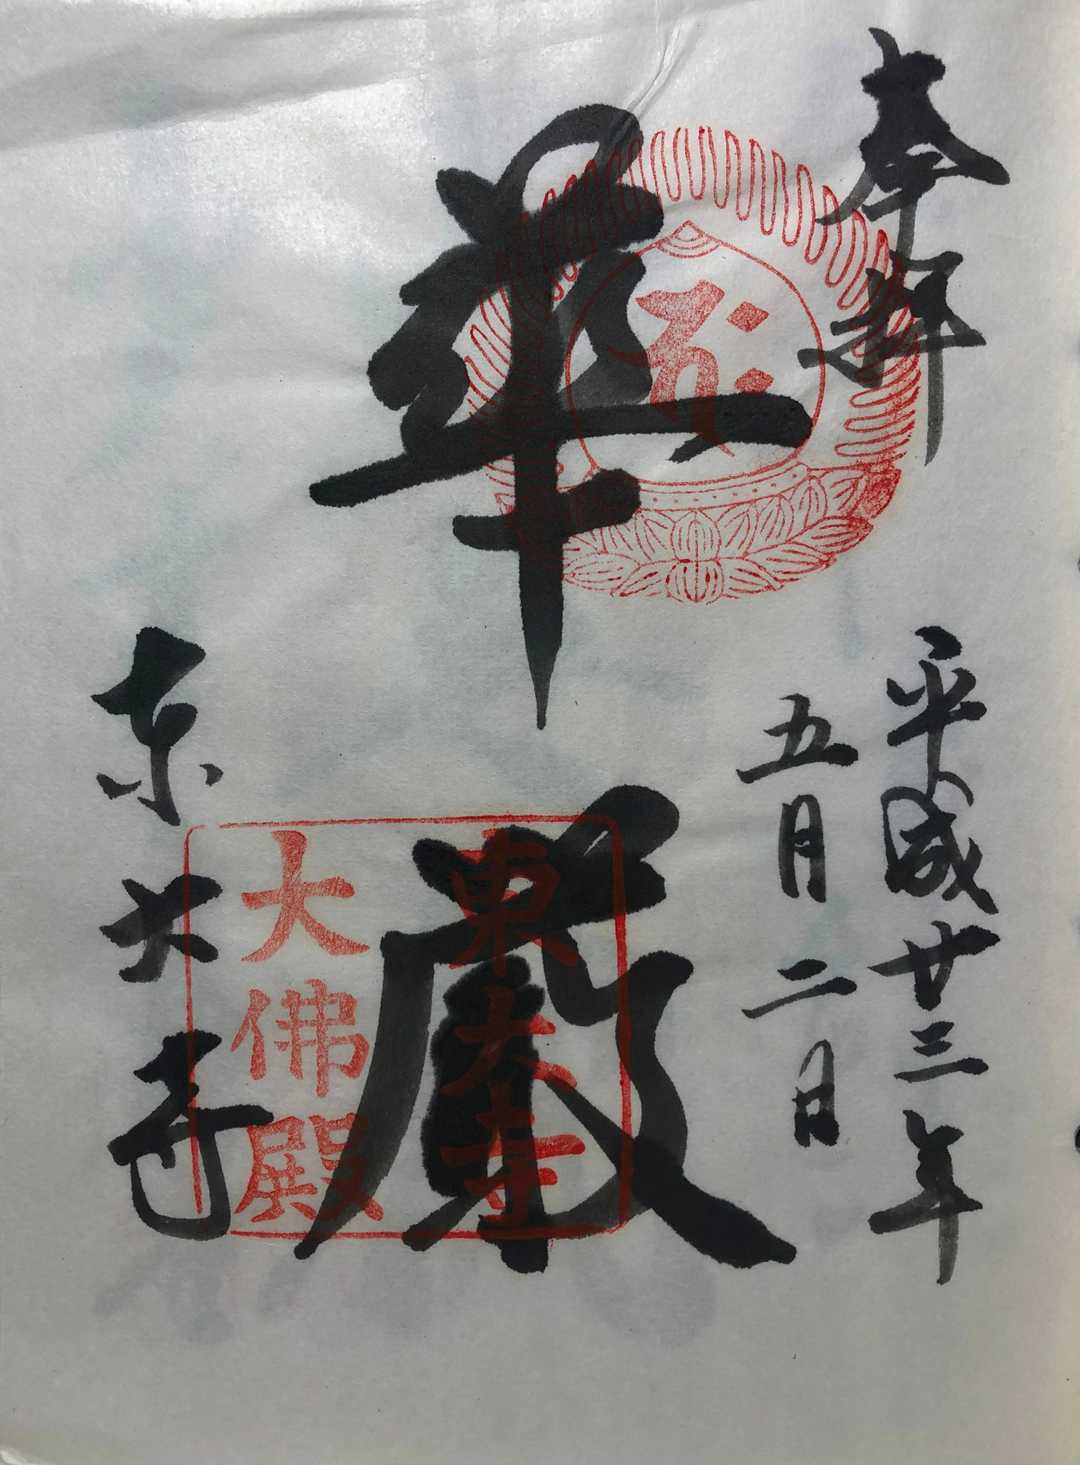 奉拝
平成廿三年
五月二日
華嚴
東大寺
東大寺
大佛殿